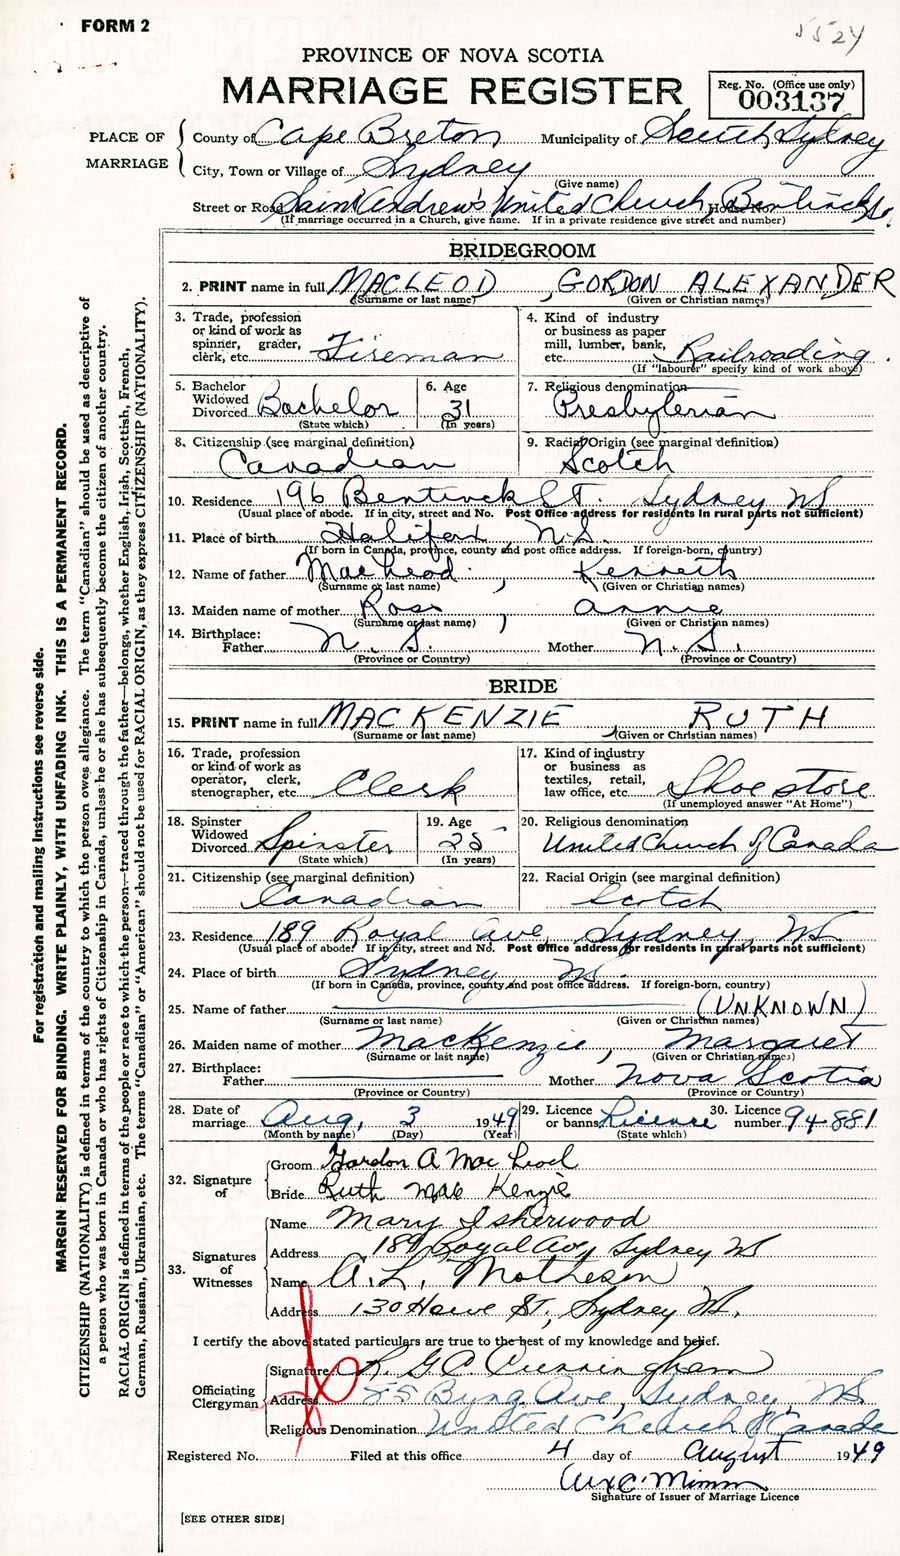 FORM 2
5524
PROVINCE OF NOVA SCOTIA
MARRIAGE REGISTER
Reg. No. (Office use only)
003137
PLACE OF MARRIAGE
County of Cape Breton Municipality of South Sydney
City, Town or Village of Sydney
(Give name)
Street or Road Saint Andrew's United Church, House No. Bentinck St.
(If marriage occurred in a Church, give name. If in a private residence give street and number)
BRIDEGROOM
2. PRINT name in full MACLEOD, GORDON ALEXANDER
(Surname or last name) (Given or Christian names)
3. Trade, profession or kind of work as spinner, grader, clerk, etc. Fireman
4. Kind of industry or business as paper mill, lumber, bank, etc. Railroading.
(If "labourer" specify kind of work above)
5. Bachelor Widowed Divorced Bachelor
(State which)
6. Age 31
(In years)
7. Religious denomination Presbyterian
8. Citizenship (see marginal definition) Canadian
9. Racial Origin (see marginal definition) Scotch
10. Residence 196 Bentinck St. Sydney NS
(Usual place of abode. If in city, street and No. Post Office address for residents in rural parts not sufficient)
11. Place of birth Halifax N.S.
(If born in Canada, province, county and post office address. If foreign-born, country)
12. Name of father MacLeod, Kenneth
(Surname or last name) (Given or Christian names)
13. Maiden name of mother Ross, Annie
(Surname or last name) (Given or Christian names)
14. Birthplace:
Father N. S. Mother N. S.
(Province or Country) (Province or Country)
BRIDE
15. PRINT name in full MACKENZIE, RUTH
(Surname or last name) (Given or Christian names)
16. Trade, profession or kind of work as operator, clerk, stenographer, etc. Clerk
17. Kind of industry or business as textiles, retail, law office, etc. Shoe store
(If unemployed answer "At Home")
18. Spinster Widowed Divorced Spinster
(State which)
19. Age 25
(In years)
20. Religious denomination United Church of Canada
21. Citizenship (see marginal definition) Canadian
22. Racial Origin (see marginal definition) Scotch
23. Residence 189 Royal Ave, Sydney, NS
(Usual place of abode. If in city, street and No. Post Office address for residents in rural parts not sufficient)
24. Place of birth Sydney, NS.
(If born in Canada, province, county and post office address. If foreign-born, country)
25. Name of father (UNKNOWN)
(Surname or last name) (Given or Christian names)
26. Maiden name of mother MacKenzie, Margaret
(Surname or last name) (Given or Christian names)
27. Birthplace:
Father Mother Nova Scotia
(Province or Country) (Province or Country)
28. Date of marriage Aug, 3 1949
(Month by name) (Day) (Year)
29. Licence or banns License
(State which)
30. Licence number 94-881
32. Signature of
Groom Gordon A MacLeod
Bride Ruth MacKenzie
33. Signatures of Witnesses
Name Mary Isherwood
Address 189 Royal Ave, Sydney NS
Name A. L. Matheson
Address 130 Howe St., Sydney NS.
I certify the above stated particulars are true to the best of my knowledge and belief.
Officiating Clergyman
Signature R. G. C. Cunningham
Address 85 Byng Ave, Sydney, NS.
Religious Denomination United Church of Canada
Registered No. Filed at this office 4 day of August 1949
Signature of Issuer of Marriage Licence
[SEE OTHER SIDE]
For registration and mailing instructions see reverse side.
MARGIN RESERVED FOR BINDING. WRITE PLAINLY, WITH UNFADING INK. THIS IS A PERMANENT RECORD.
CITIZENSHIP (NATIONALITY) is defined in terms of the country to which the person owes allegiance. The term "Canadian" should be used as descriptive of
a person who was born in Canada or who has rights of Citizenship in Canada, unless he or she has subsequently become the citizen of another country.
RACIAL ORIGIN is defined in terms of the people or race to which the person—traced through the father—belongs, whether English, Irish, Scottish, French,
German, Russian, Ukrainian, etc. The terms "Canadian" or "American" should not be used for RACIAL ORIGIN, as they express CITIZENSHIP (NATIONALITY).